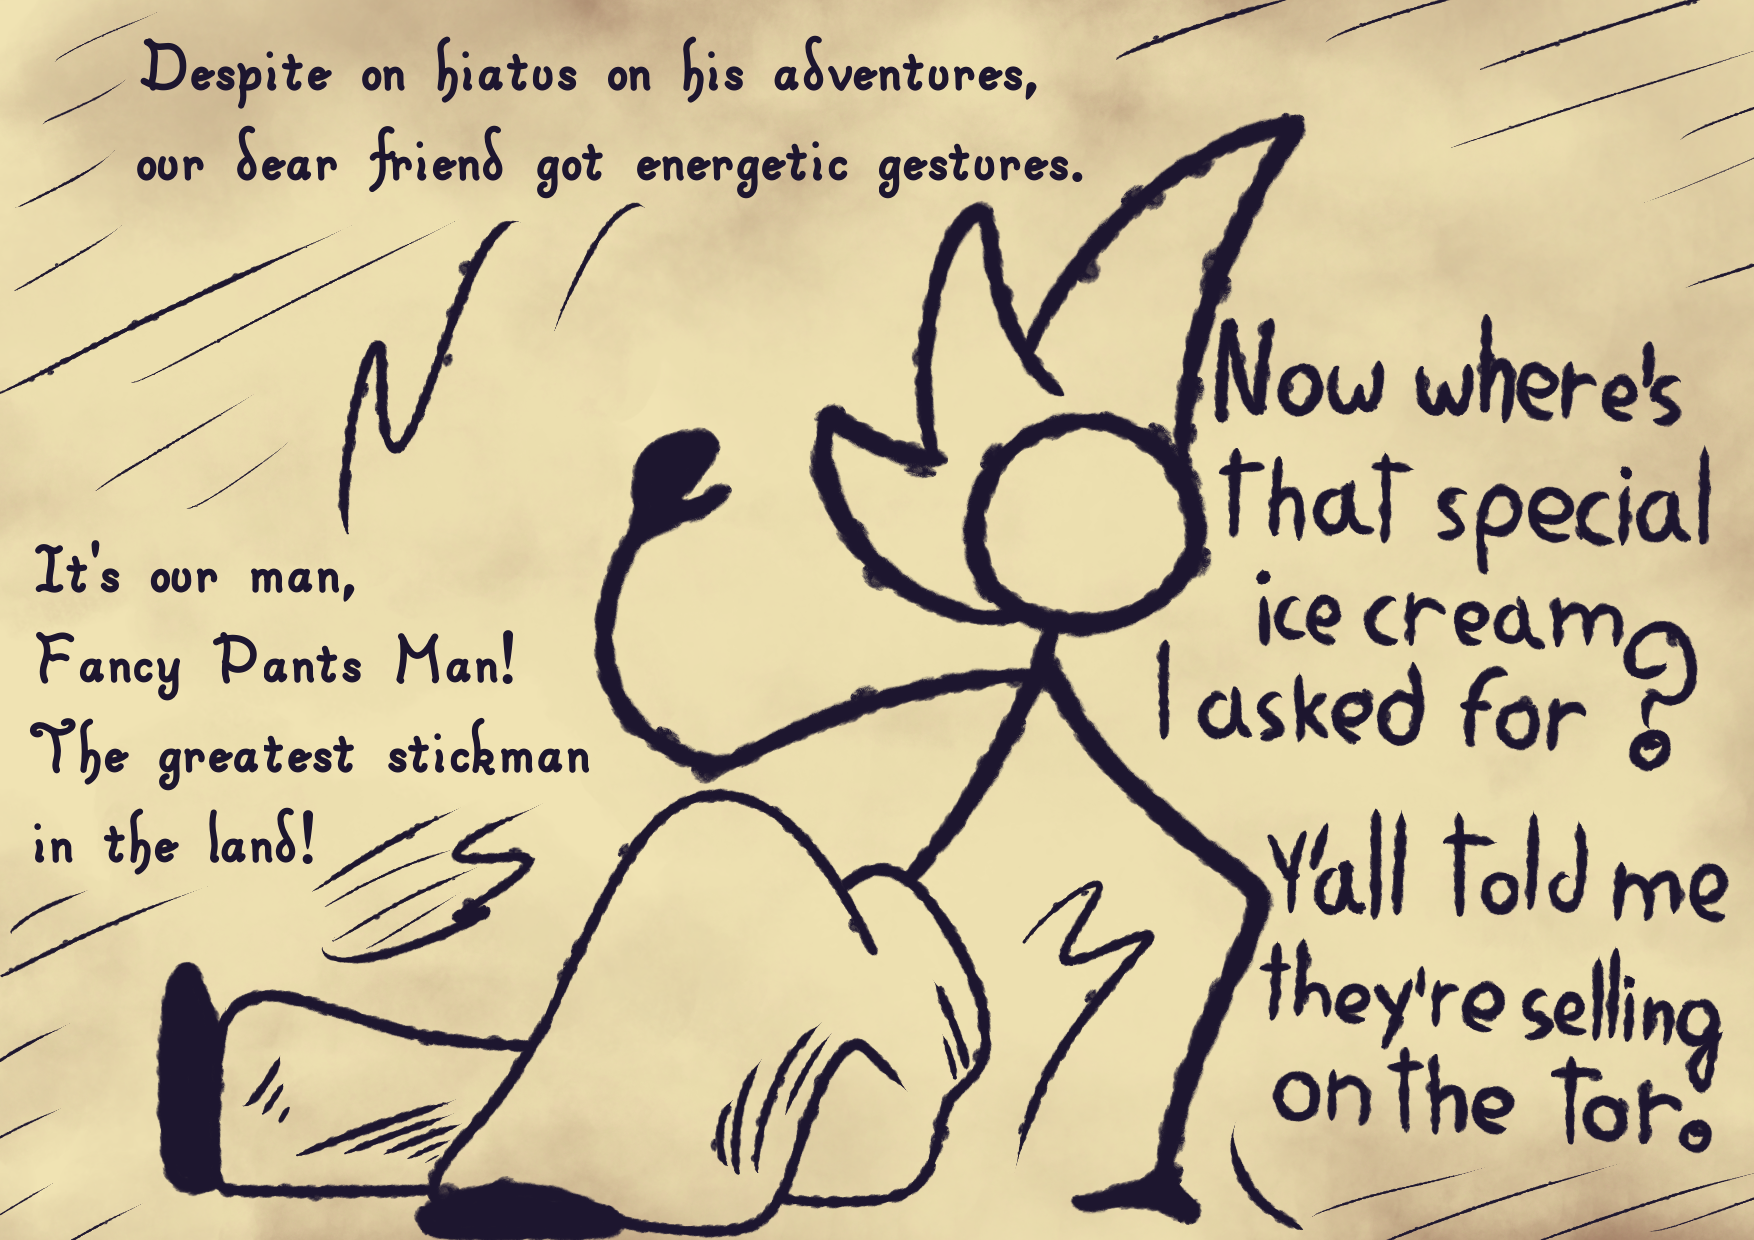 Despite on hiatus on his adventures,
our dear friend got energetic gestures.
It's our man,
Fancy Pants Man!
The greatest stickman
in the land!
Now where's
that special
ice cream
I asked for?
Y'all told me
they're selling
on the tor.